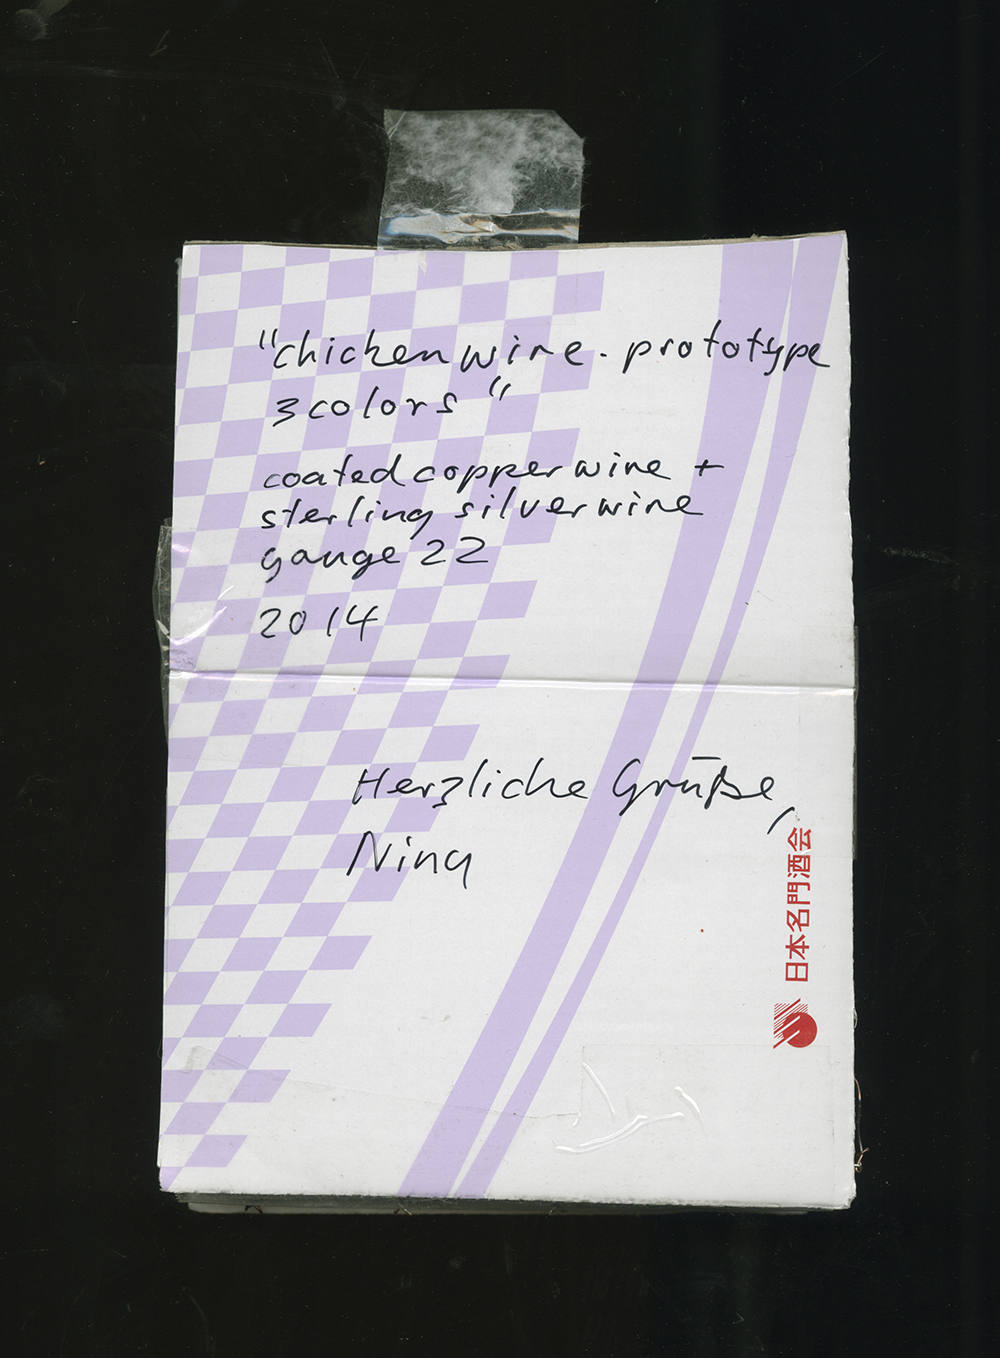 "chicken wire. prototype
3 colors"
coated copper wire +
sterling silver wire
gauge 22
2014
Herzliche Grüße,
Nina
日本名門酒会